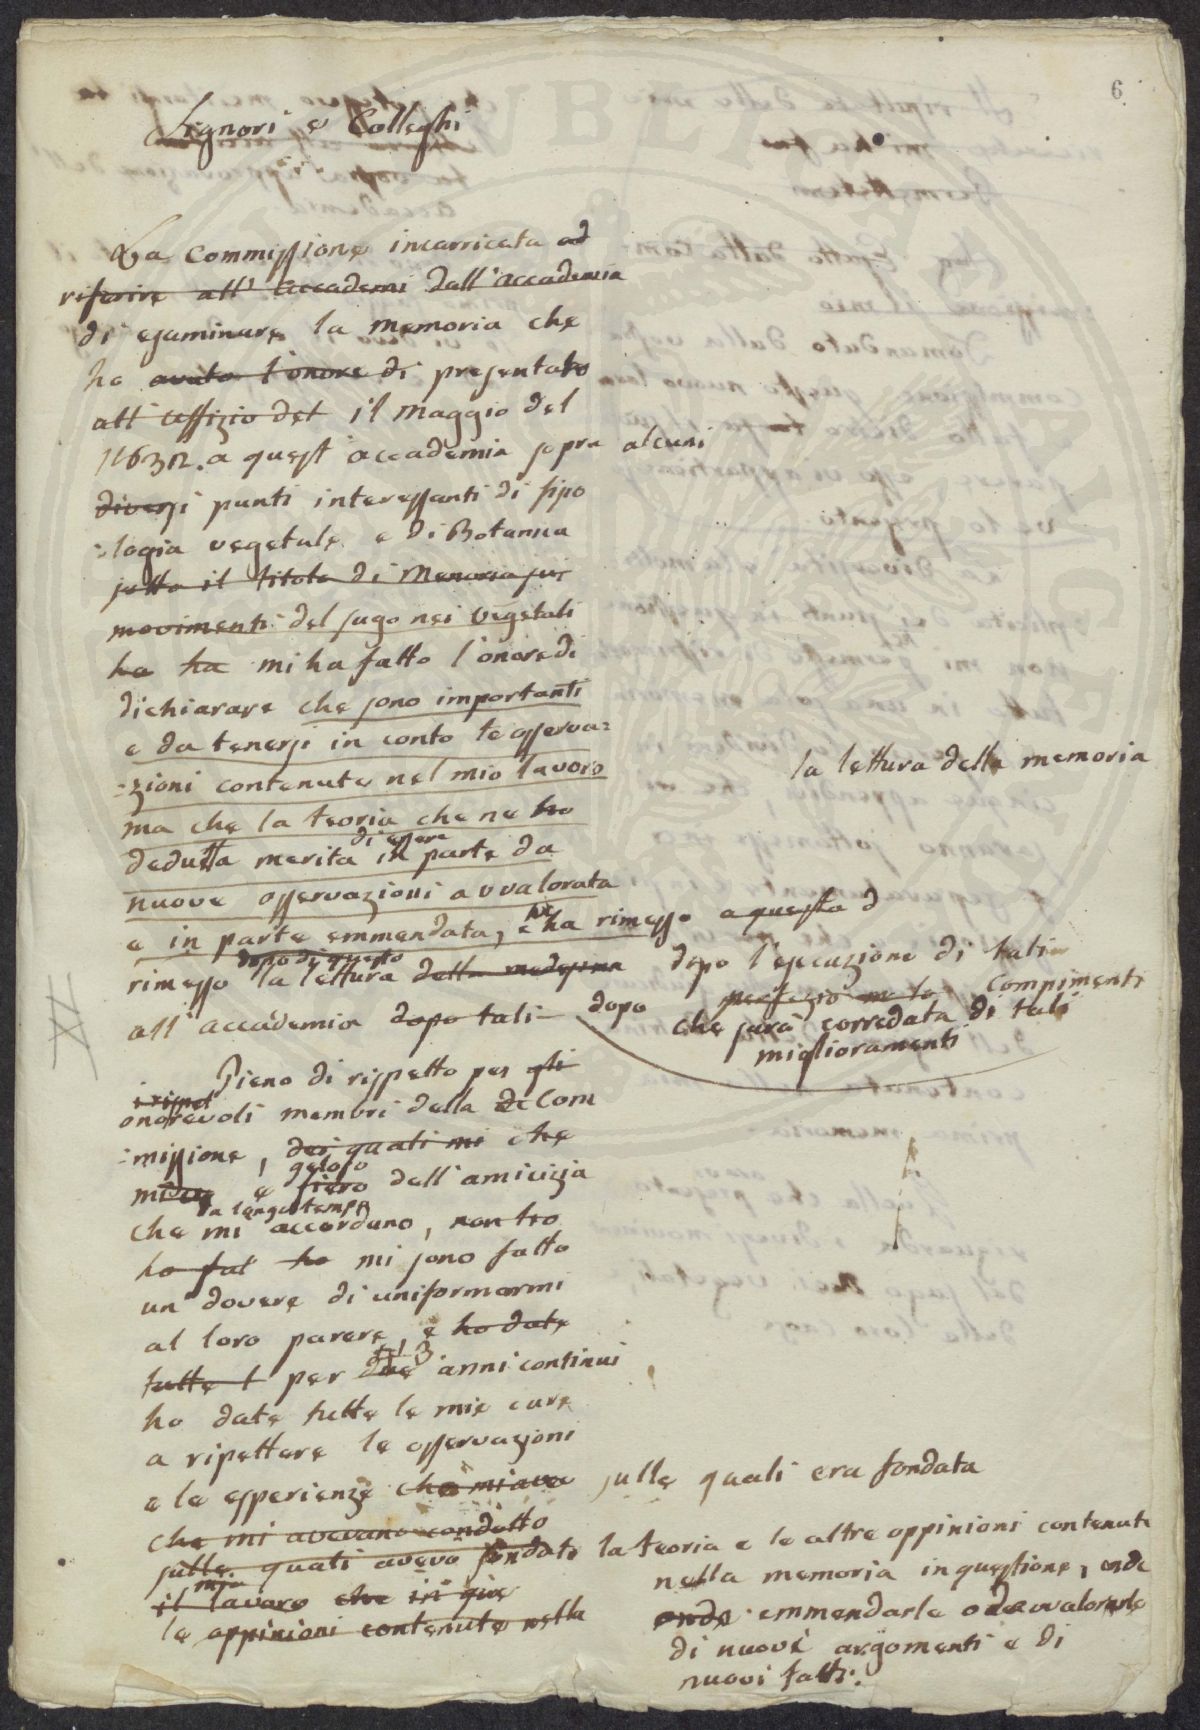 6
Signori e Colleghi
La Commissione incarricata ad
riferire all' Accademi dall'accademia
di esaminare la memoria che
ho avuto l'onore di presentato
all' Uffizio del il Maggio del
a quest' accademia sopra alcuni
diversi punti interessanti di fisio
:logia vegetale e di Botanica
sotto il titolo di Memoria sui
movimenti del sugo nei vegetali
ha ha mi ha fatto l'onore di
dichiarare che sono importanti
e da tenersi in conto le osserva=
:zioni contenute nel mio lavoro
ma che la teoria che ne ho
dedutta merita di essere in parte da
nuove osservazioni avvalorata
e in parte emmendata, e ne ha rimesso a questo d
rimesso dopo di questo la lettura della medesima
all' accademia dopo tali dopo
la lettura della memoria
dopo l'esecuzione di tali
perfeziomento compimenti
che sarà corredata di tali
miglioramenti
Pieno di rispetto per gli
onorevoli membri della di Com
:missione, dei quali mi che
e geloso fiero dell'amicizia
che mi da lungo tempo accordano, non ho
ho fat ho mi sono fatto
un dovere di uniformarmi
al loro parere, e ho date
tutte l per due 3 anni continui
ho date tutte le mie cure
a ripettere le osservazioni
e le esperienze che mi ava sulle quali era fondata
che mi avevano condotto
sulle quali avevo fondato la teoria e le altre oppinioni contenute
il mio lavoro che in que
le oppinioni contenute nella
nella memoria in questione, onde
onde emmendarle o avvalorarle
di nuovi argomenti e di
nuovi fatti.